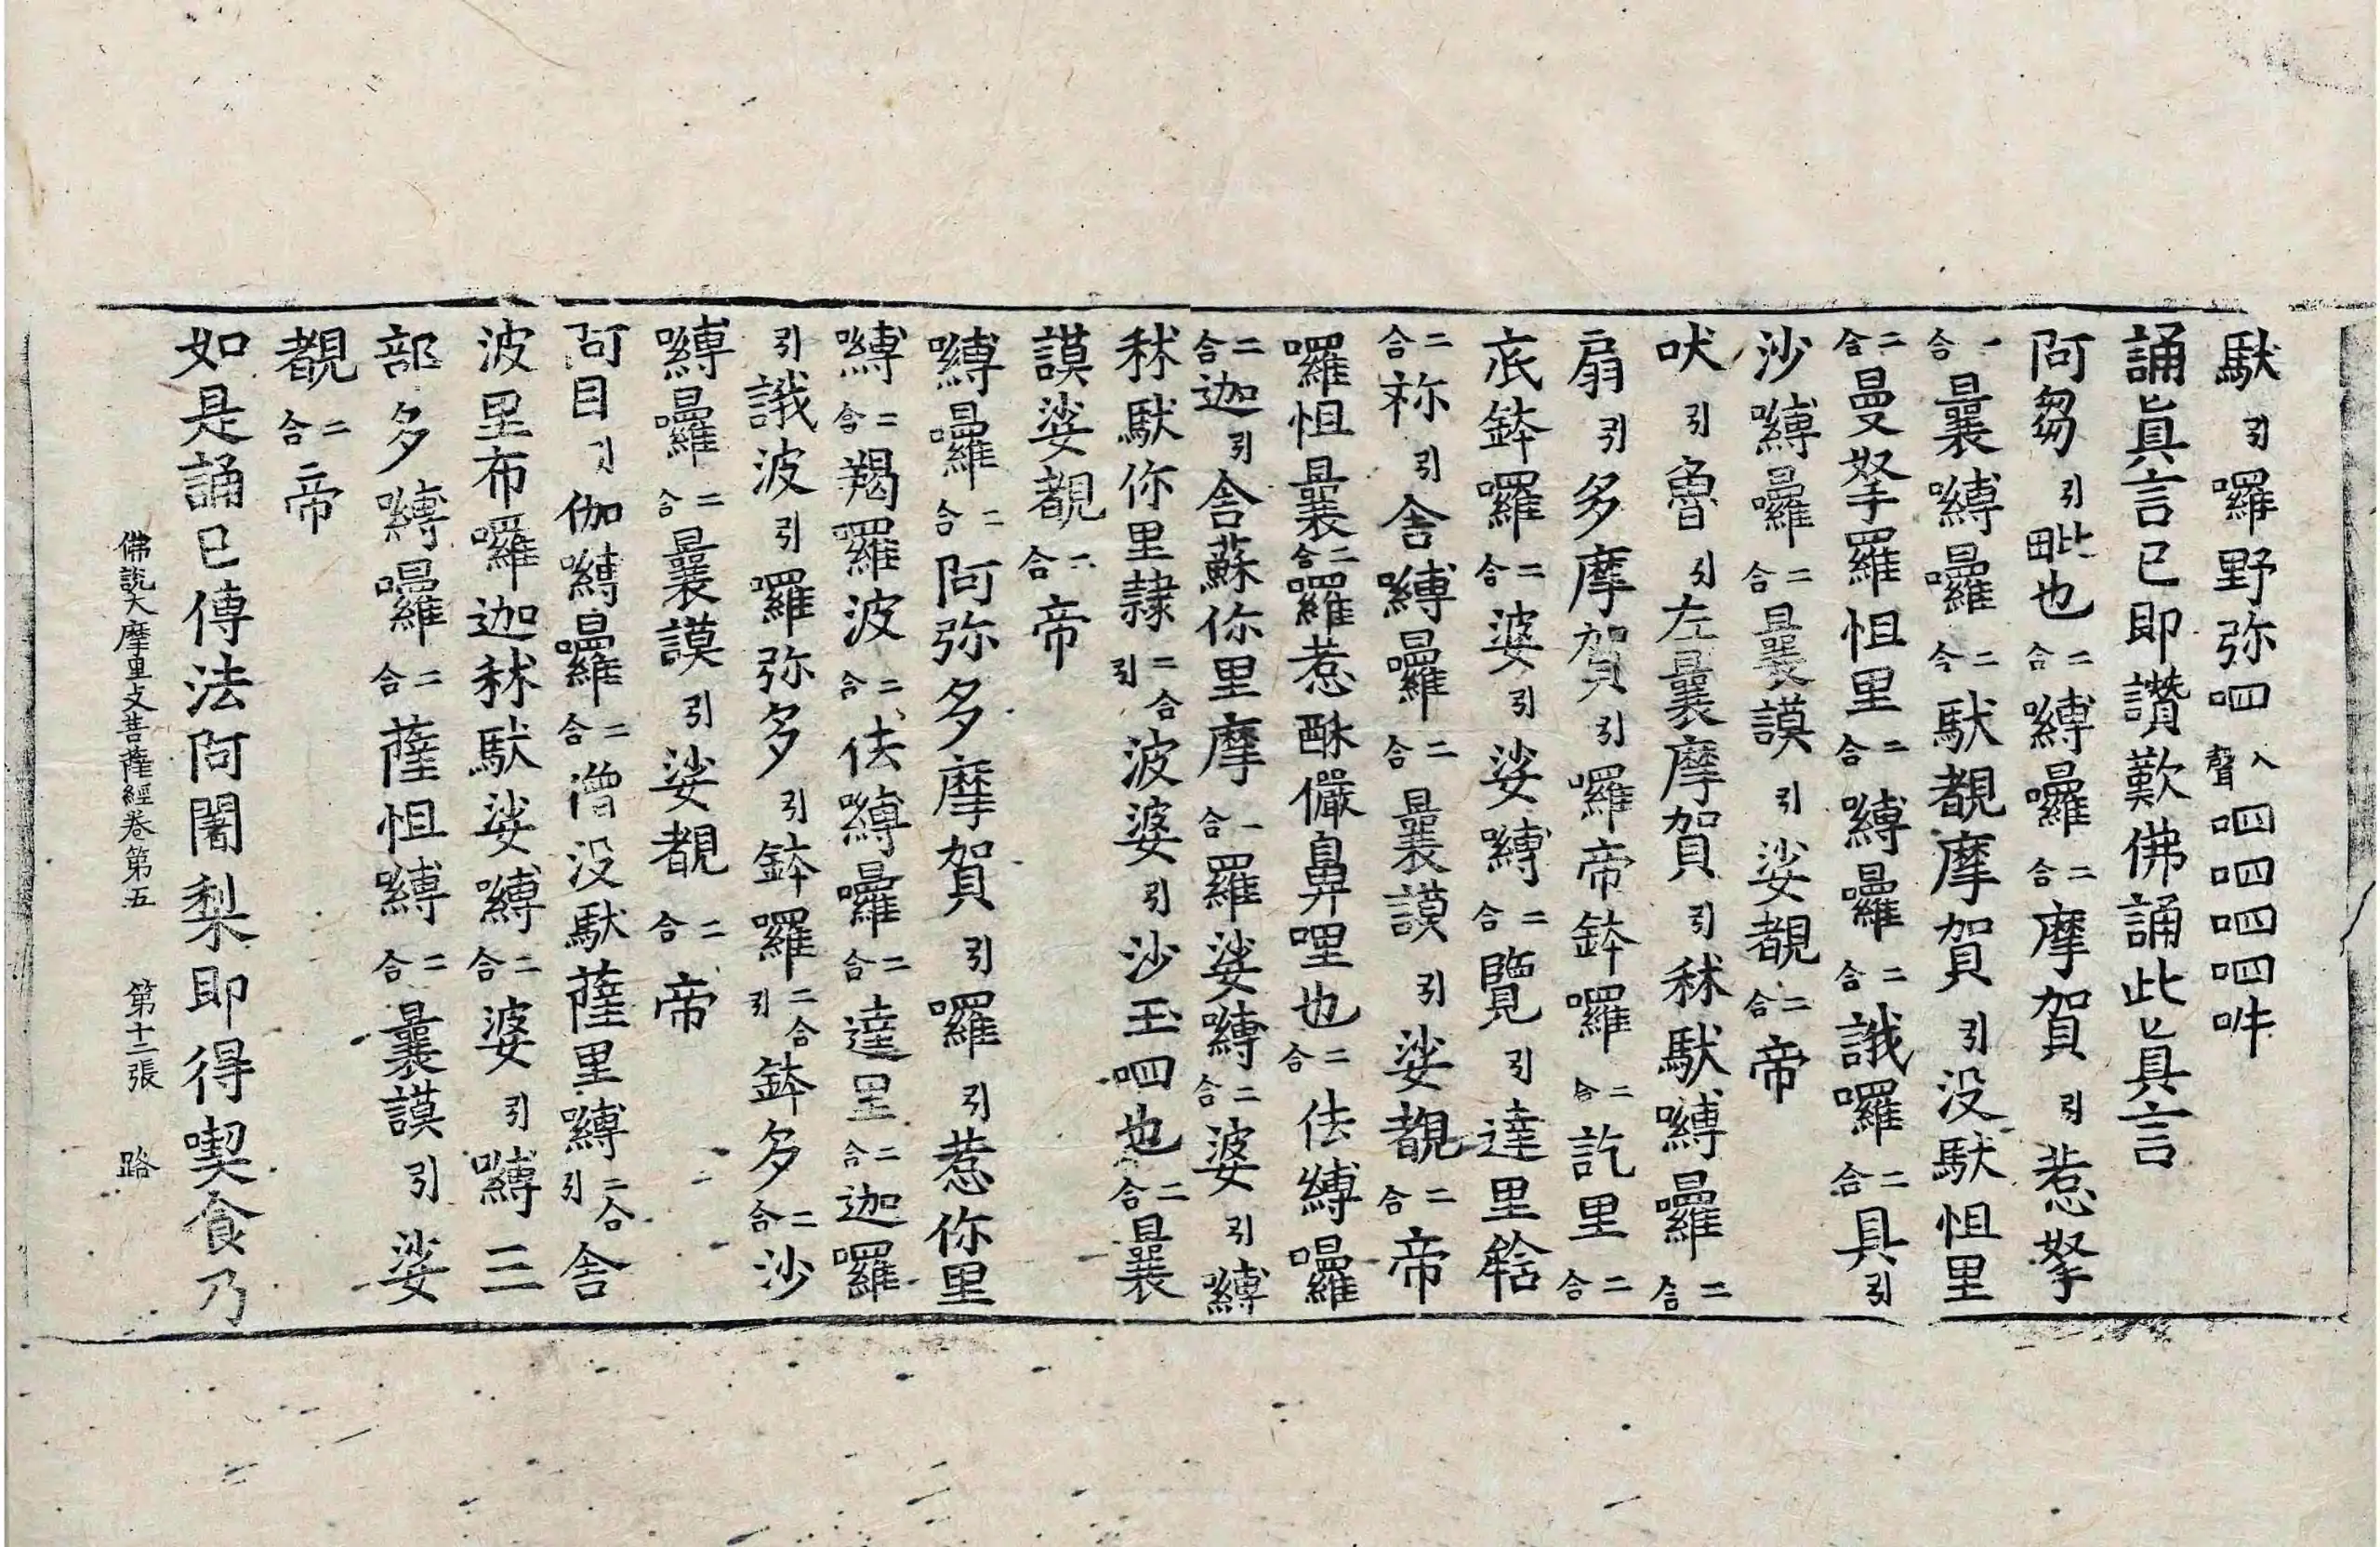 馱引囉野弥呬入聲呬呬呬呬吽
誦眞言已即讚歎佛誦此眞言
阿芻引毗也二合嚩囉二合摩賀引惹拏
二合曩嚩囉二合馱覩摩賀引没馱怛里
二合曼拏羅怛里二合嚩囉二合誐囉二合具引
沙嚩囉二合曩謨引娑覩二合帝
吠引魯引左曩摩賀引秫馱嚩囉二合
扇引多摩賀引囉帝鉢囉二合訖里二合
底鉢囉二合婆引娑嚩二合覽引達里轄
二合祢引舍嚩囉二合曩謨引娑覩二合帝
囉怛曩二合囉惹酥儼鼻哩也二合佉嚩囉
二合迦引舍蘇你里摩一合羅娑嚩二合婆引嚩
秫馱你里隷二合引波婆引沙玉呬也二合曩
謨娑覩二合帝
嚩囉二合阿弥多摩賀引囉引惹你里
嚩二合羯羅波二合佉嚩囉二合達里二合迦囉
引誐波引囉弥多引鉢囉二合引鉢多二合沙
嚩囉二合曩謨引娑覩二合帝
阿目引伽嚩囉二合僧没馱薩里嚩二合引舍
波里布囉迦秫馱娑嚩二合婆引嚩三
部多嚩囉二合薩怛嚩二合曩謨引娑
覩二合帝
如是誦已傳法阿闍梨即得喫食乃
佛說大摩里支菩薩經卷第五 第十二張 路